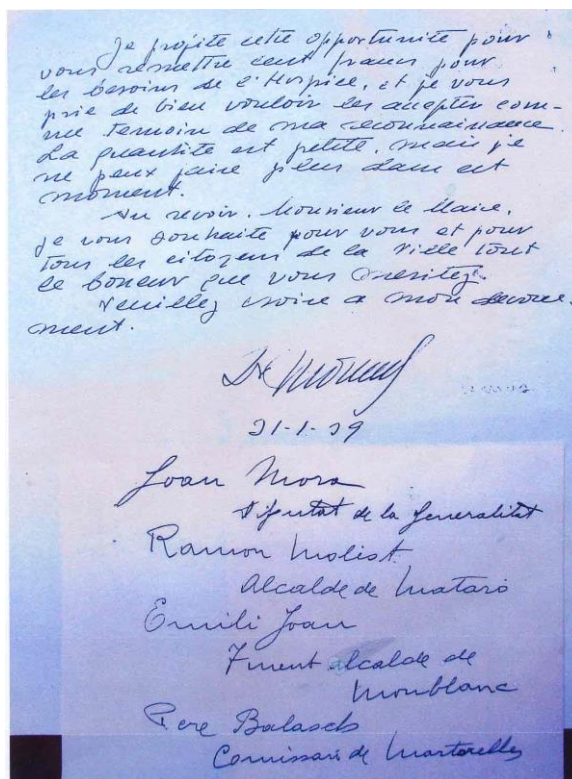 Je profite cette opportunité pour
vous remettre cent francs pour
les besoins de l'Hospice, et je vous
prie de bien vouloir les accepter com-
me temoin de ma reconnaissance.
La quantité est petite, mais je
ne peux faire plus dans cet
moment.
Au revoir. Monsieur le Maire,
je vous souhaite pour vous et pour
tous les citoyens de la ville tout
le boneur que vous meritez.
Veuillez croire a mon devoue-
ment.
Dr
31-1-39
Joan Mora
Diputat de la Generalitat
Ramon Molist
Alcalde de Mataró
Emili Joan
Tinent alcalde de
Monblanc
Pere Balasch
Comissari de Martorelles